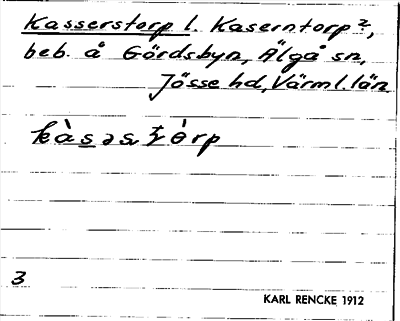 Kasserstorp l. Kaserntorp?,
beb. å Gördsbyn, Älgå sn,
Jösse hd, Värml. län
3
KARL RENCKE 1912